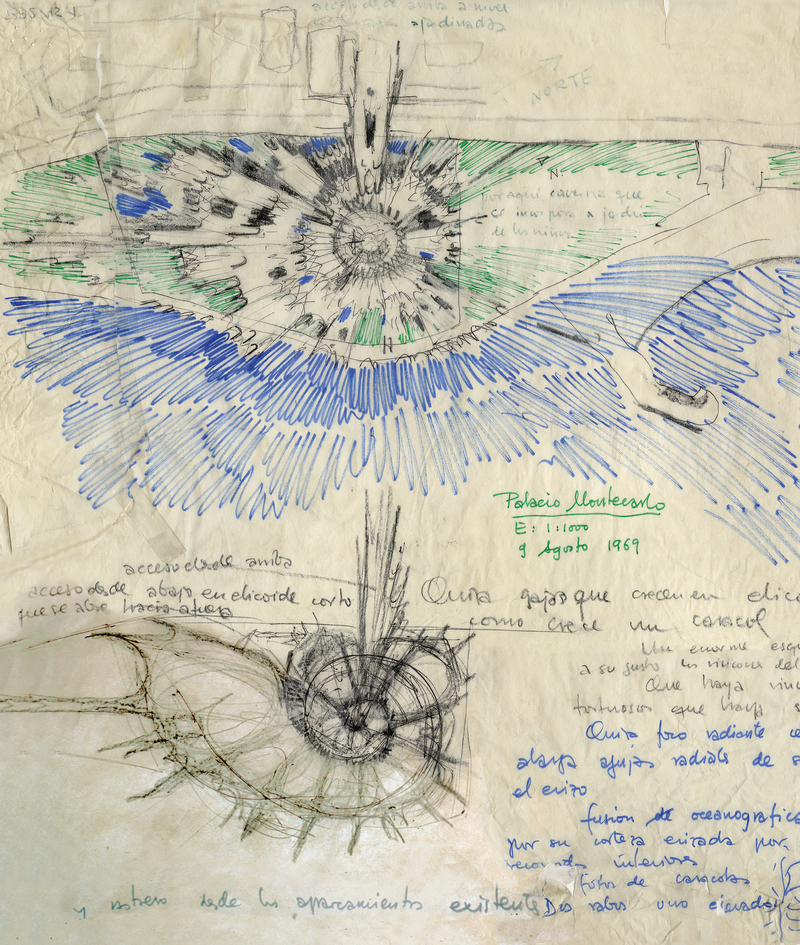 acceso desde arriba a nivel
ajardinadas
NORTE
N.
por aquí caverna que
se incorpora a jardin
de los niños
Palacio Montecarlo
E: 1:1000
9 Agosto 1969
acceso desde arriba
acceso desde abajo en elicoide corto
que se abre hacia afuera
Quiza gajos que crecen en elico
como crece un caracol
Un enorme esq
a su gusto los rincones del
Que haya rinc
tortuosos que haya s
Quiza foco radiante ce
abaja agujas radiales de s
el erizo
fusion de oceanografico
por su corteza erizada por
recorridos interiores
fotos de caracolas
y rastreo desde los aparcamientos existente
Dos rabos uno elevado